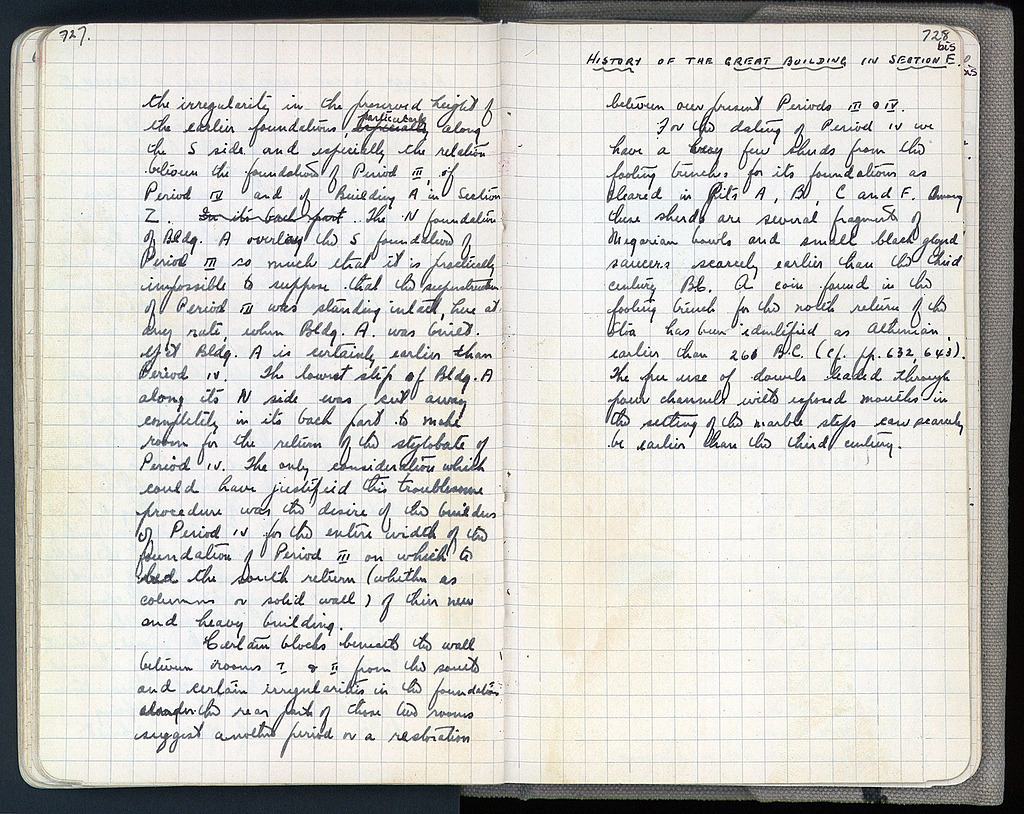 727.
the irregularity in the preserved height of
the earlier foundations, particularly along
the S side and especially the relation
between the foundation of Period III, of
Period IV and of Building A in Section
Z. In its back part. The N foundation
of Bldg. A overlay the S foundation of
Period III so much that it is practically
impossible to suppose that the superstructure
of Period III was standing intact, here at
any rate, when Bldg. A was built.
Yet Bldg. A is certainly earlier than
Period IV. The lowest step of Bldg. A
along its N side was cut away
completely in its back part to make
room for the return of the stylobate of
Period IV. The only consideration which
could have justified this troublesome
procedure was the desire of the builders
of Period IV for the entire width of the
foundation of Period III on which to
bed the south return (whether as
columns or solid wall) of their new
and heavy building.
Certain blocks beneath the wall
between rooms I & II from the south
and certain irregularities in the foundations
in the rear part of those two rooms
suggest another period or a restoration
728
bis
HISTORY OF THE GREAT BUILDING IN SECTION E.
between our present Periods III & IV.
For the dating of Period IV we
have a few sherds from the
footing trenches for its foundations as
cleared in Pits A, B, C and F. Among
these sherds are several fragments of
Megarian bowls and small black glazed
saucers scarcely earlier than the third
century BC. A coin found in the
footing trench for the north return of the
Stoa has been identified as Athenian,
earlier than 260 B.C. (cf. pp. 632, 643).
The free use of dowels leaded through
pour channels with exposed mouths in
the setting of the marble steps can scarcely
be earlier than the third century.